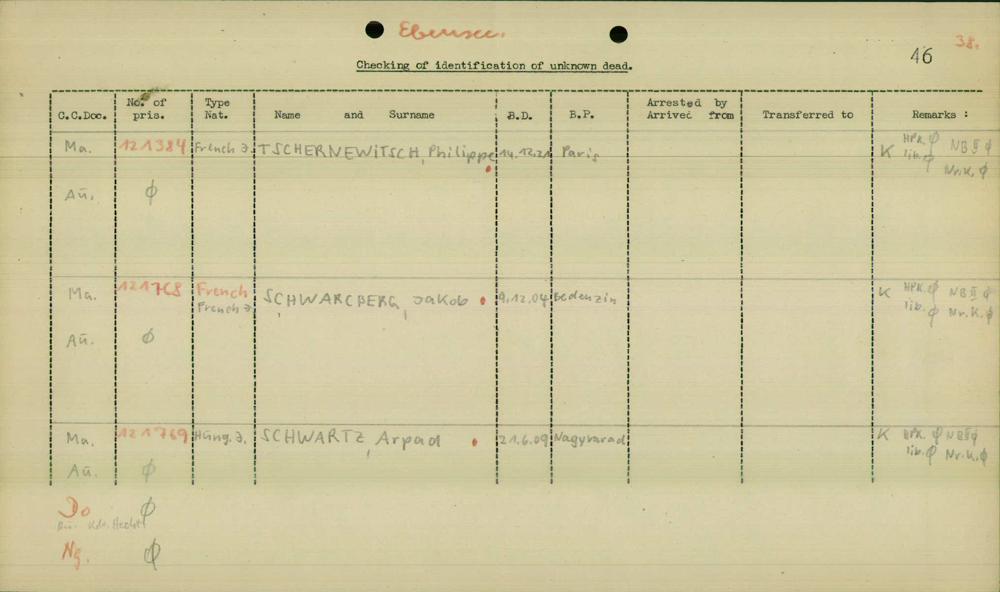 Ebensee.
38.
46
Checking of identification of unknown dead.
C.C.Doc. No. of pris. Type Nat. Name and Surname B.D. B.P. Arrested by Arrived from Transferred to Remarks :
Ma. 121384 French J. TSCHERNEWITSCH, Philippe 14.12.21 Paris K HPK. ϕ NB II ϕ
lib. ϕ Nr.K. ϕ
Aū. ϕ
Ma. 121768 French SCHWARCBERG, Jakob 9.12.04 Bedenzin K HPK. ϕ NB II ϕ
French J. lib. ϕ Nr.K. ϕ
Aū. ϕ
Ma. 121769 Hung. J. SCHWARTZ, Arpad 21.6.09 Nagyvarad K HPK. ϕ NB II ϕ
lib. ϕ Nr.K. ϕ
Aū. ϕ
Do ϕ
Ng. ϕ